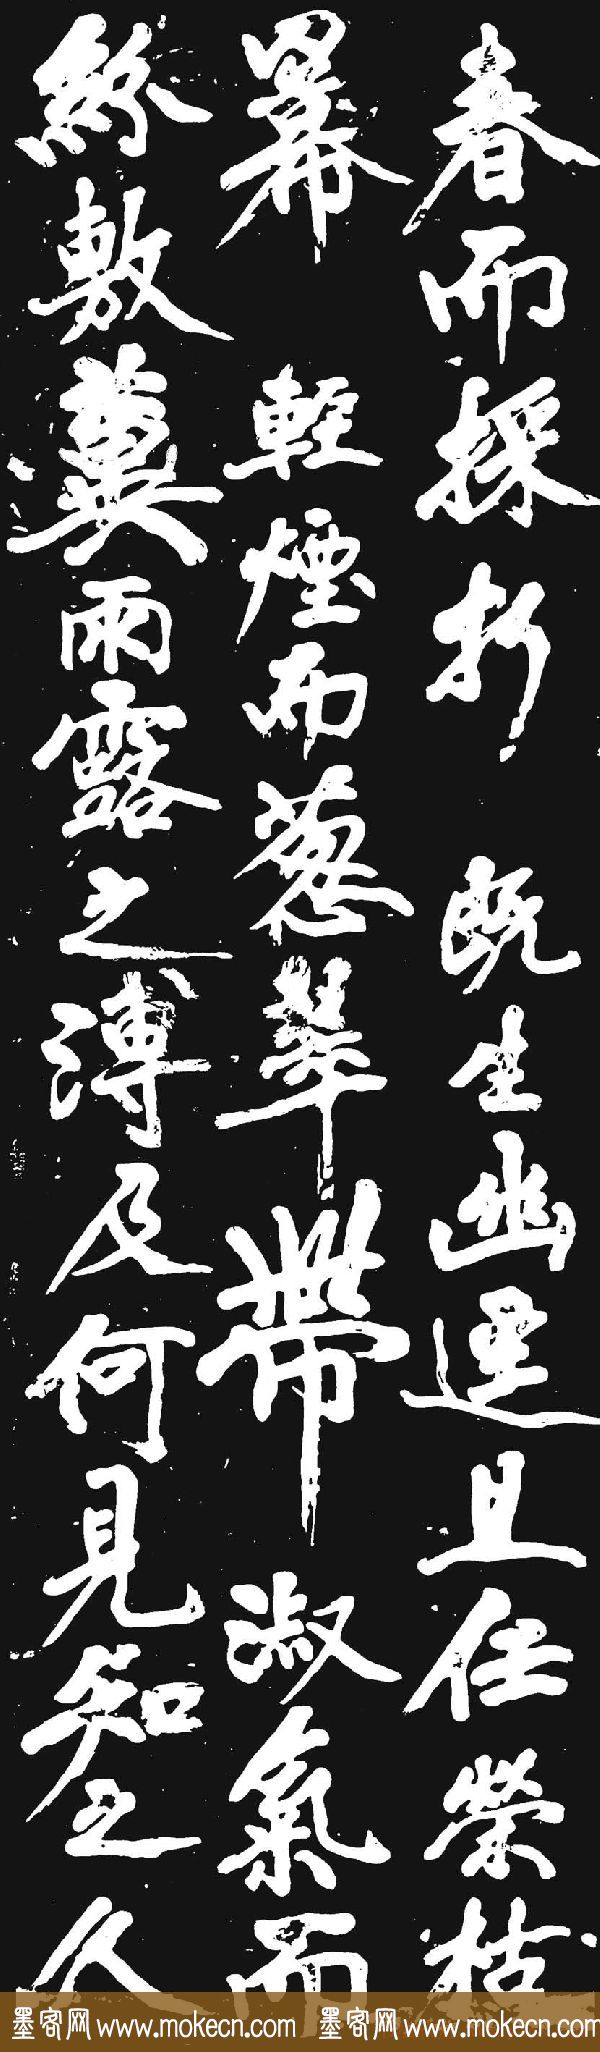 春而採折既生幽逕且任榮枯
冪輕煙而葱翠帶淑氣而
紛敷冀雨露之溥及何見知之久
墨客网 www.mokecn.com 墨客网 www.mokecn.com